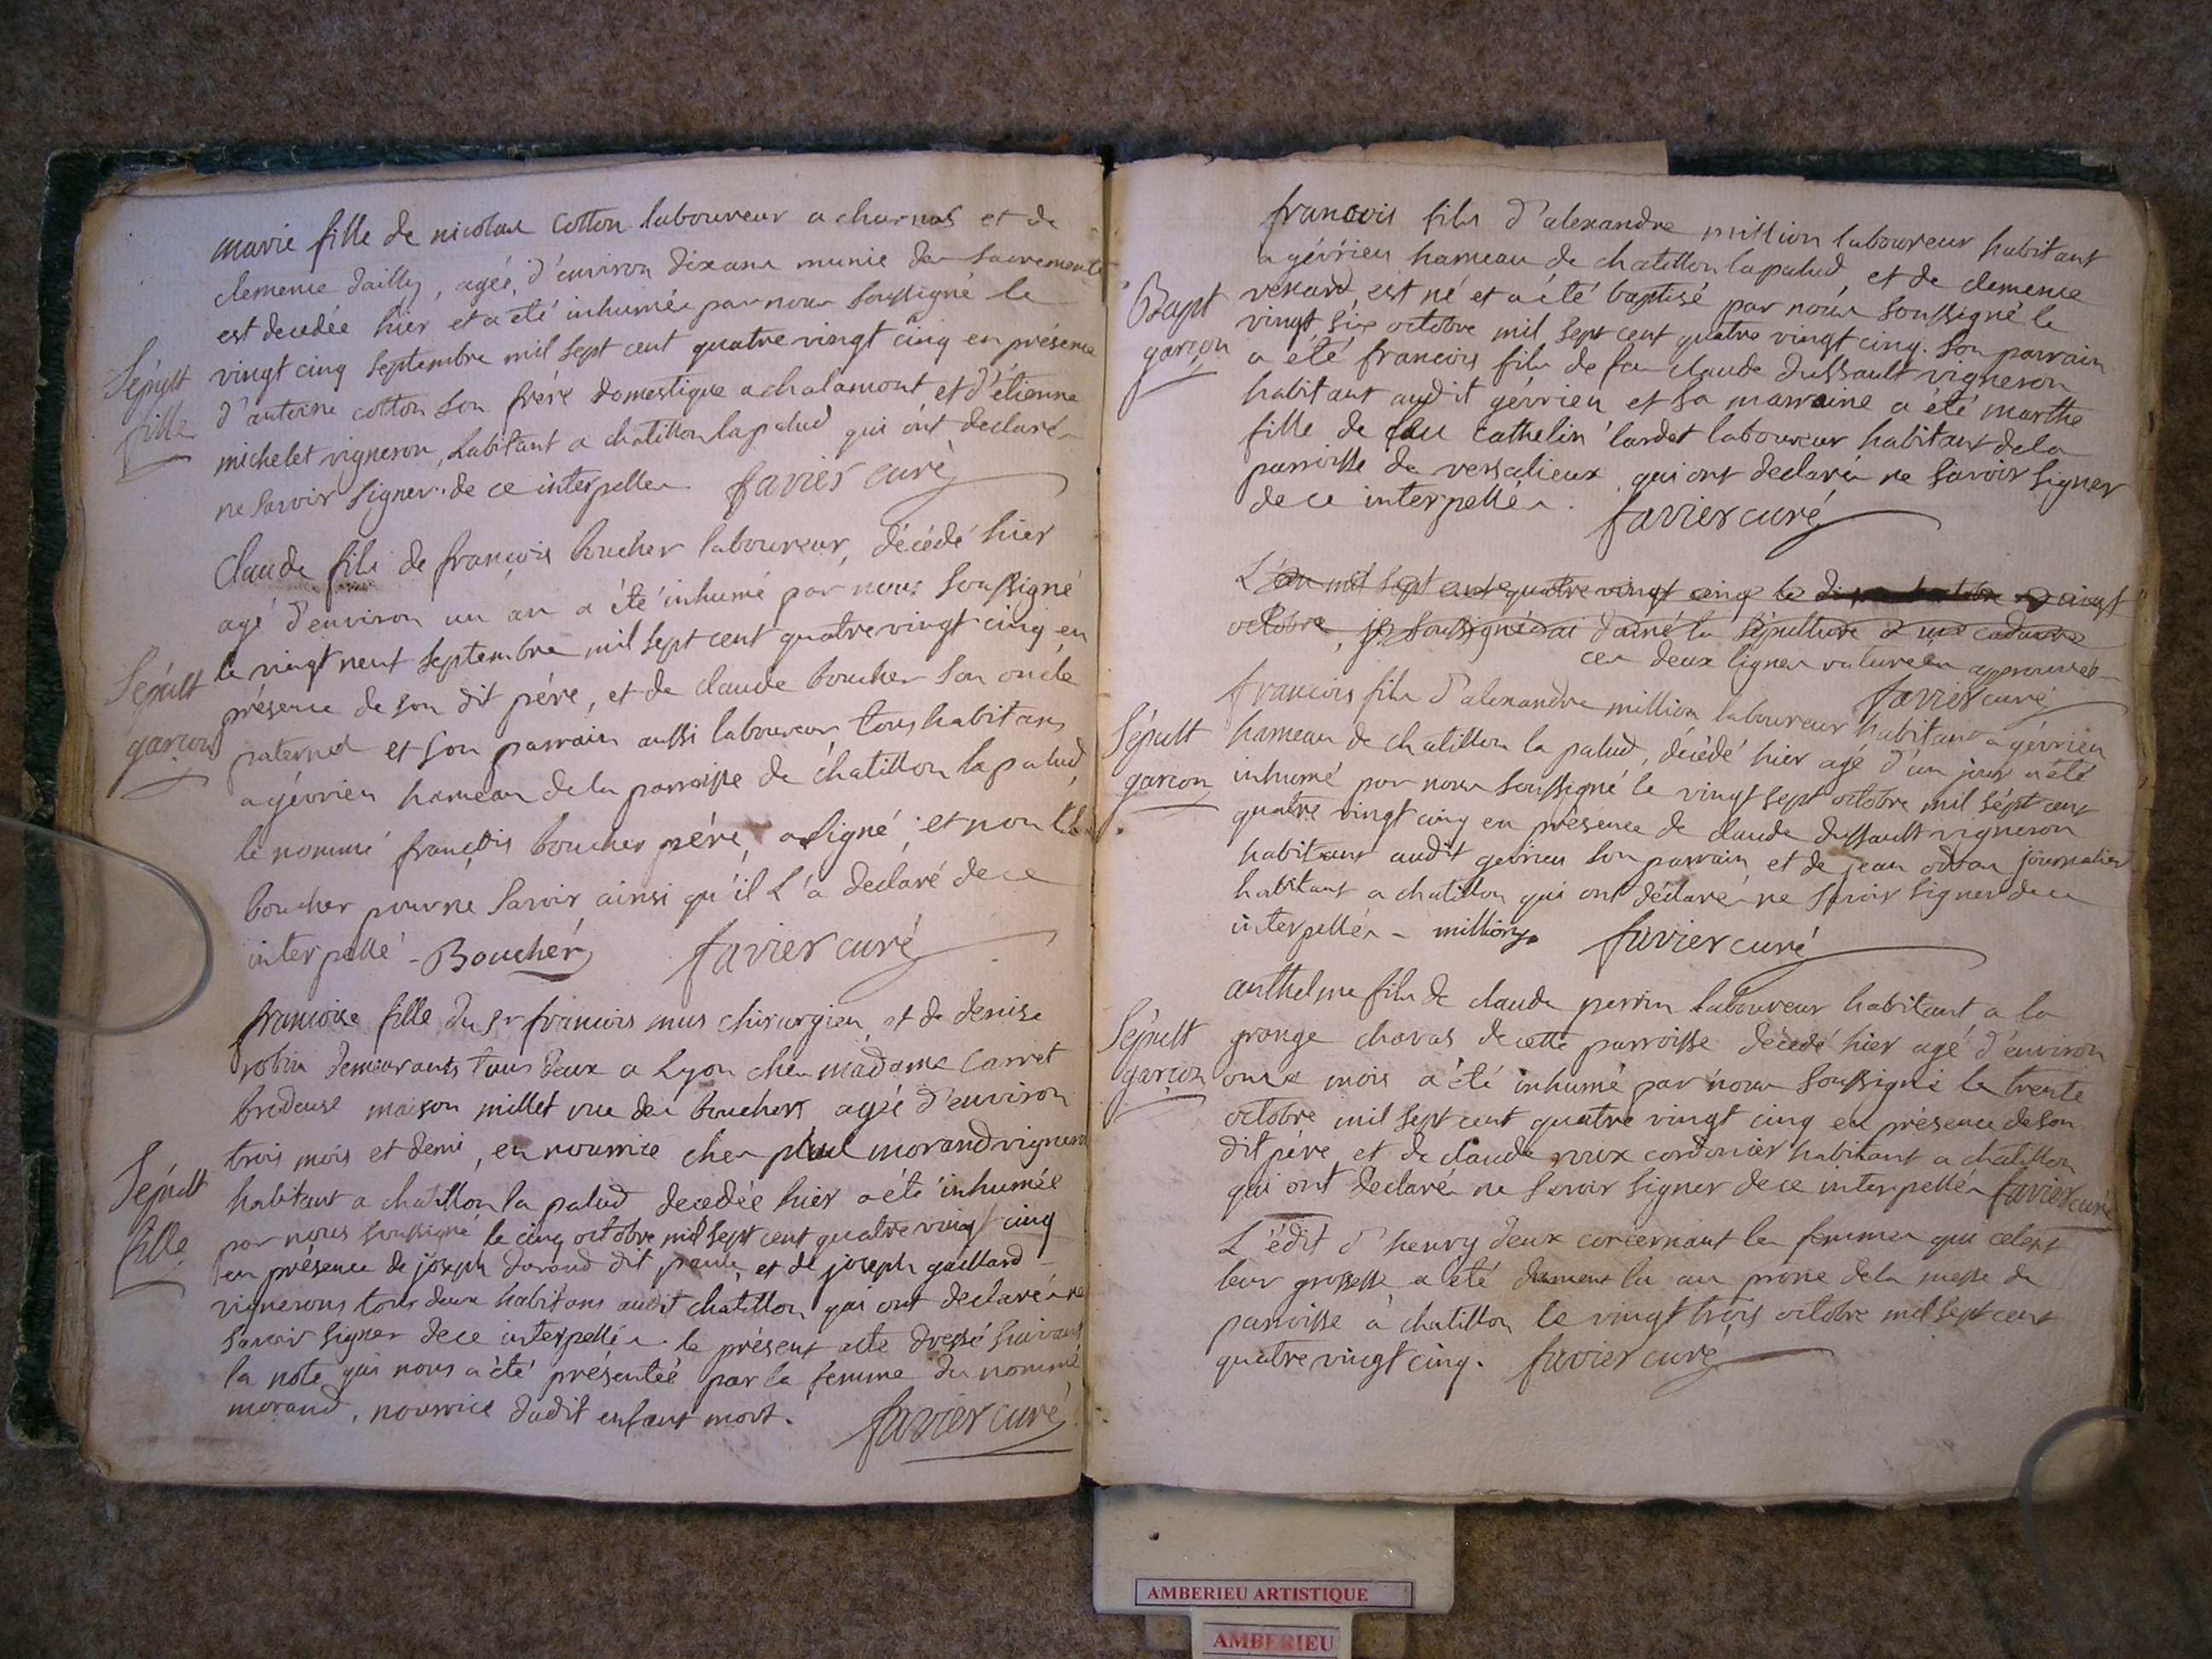 marie fille de nicolas Cotton laboureur a charnas et de
clemence dailly, agée d'environ dix ans munie des sacrements
est decedée hier et a été inhumée par nous soussigné le
Sépult
fille
vingt cinq septembre mil sept cent quatre vingt cinq en présence
d'antoine cotton son frére domestique a chalamont et d'étienne
michelet vigneron, habitant a chatillon lapalud qui ont declarés
ne savoir signer de ce interpellés favier curé
Claude fils de françois boucher laboureur, décédé hier
agé d'environ un an a été inhumé par nous soussigné
Sépult
garcon
le vingt neuf septembre mil sept cent quatre vingt cinq en
présence de son dit pére, et de claude boucher son oncle
paternel et son parrain aussi laboureur tous habitans
a gévrieu hameau de la parroisse de chatillon la palud,
le nommé françois boucher pére, a signé, et non
boucher pour ne savoir ainsi qu'il l'a declaré de ce
interpellé - Bouchér favier curé
francoise fille du sr francois mus chirurgien, et de denise
robin demeurants tous deux a Lyon ches madame Carret
brodeuse maison millet rue des bouchers agée d'environ
trois mois et demi, en nourrice ches paul morand vigneron
Sépult
fille
habitant a chatillon la palud decedée hier a été inhumée
par nous soussigné le cinq octobre mil sept cent quatre vingt cinq
en présence de joseph durand dit paule, et de joseph gaillard
vignerons tous deux habitans audit chatillon qui ont declarés ne
savoir signer de ce interpellés. le présent acte dressé suivant
la note qui nous a été présentée par la femme du nommé
morand, nourrice dudit enfant mort. favier curé
francois fils d'alexandre million laboureur habitant
a gévrieu hameau de chatillon lapalud, et de clemence
Bapt
garcon
renard, est né et a été baptisé par nous soussigné le
vingt six octobre mil sept cent quatre vingt cinq. son parrain
a été francois fils de feu claude dussault vigneron
habitant audit gévrieu et sa marraine a été marthe
fille de feu Cathelin lardet laboureur habitant de la
parroisse de versalieux qui ont declarés ne savoir signer
de ce interpellés. favier curé
L'an mil sept cent quatre vingt cinq le vingt
octobre, je soussigné ai donné la sépulture a un cadavre
ces deux lignes raturées approuvées
favier curé
francois fils d'alexandre million laboureur habitant a gévrieu
Sépult
garcon
hameau de chatillon la palud, décédé hier agé d'un jour a été
inhumé par nous soussigné le vingt sept octobre mil sept cent
quatre vingt cinq en présence de claude dussault vigneron
habitant audit gevrieu son parrain, et de jean journalier
habitant a chatillon qui ont déclarés ne savoir signer de ce
interpellés - million favier curé
anthelme fils de claude perrin laboureur habitant a la
Sépult
garcon
grange chavas de cette parroisse décédé hier agé d'environ
onze mois a été inhumé par nous soussigné le trente
octobre mil sept cent quatre vingt cinq en présence de son
dit pére, et de claude roux cordonier habitant a chatillon
qui ont declarés ne savoir signer de ce interpellés favier curé
L'édit d'henry deux concernant les femmes qui celent
leur grossesse a été dument lu au prone de la messe de
parroisse a chatillon le vingt trois octobre mil sept cent
quatre vingt cinq. favier curé
AMBERIEU ARTISTIQUE
AMBERIEU